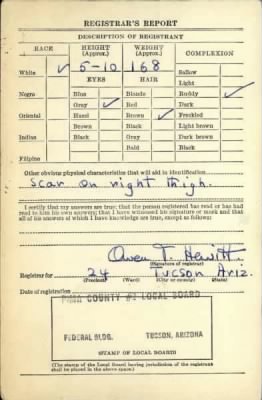 REGISTRAR'S REPORT
DESCRIPTION OF REGISTRANT
RACE HEIGHT (Approx.) WEIGHT (Approx.) COMPLEXION
White ✓ 5-10 168 Sallow
EYES HAIR Light
Negro Blue Blonde Ruddy ✓
Gray ✓ Red Dark
Oriental Hazel Brown ✓ Freckled
Brown Black Light brown
Indian Black Gray Dark brown
Bald Black
Filipino
Other obvious physical characteristics that will aid in identification
Scar on right thigh.
I certify that my answers are true; that the person registered has read or has had read to him his own answers; that I have witnessed his signature or mark and that all of his answers of which I have knowledge are true, except as follows:
Owen T. Hewitt
(Signature of registrar)
Registrar for 24 Tucson Ariz.
(Precinct) (Ward) (City or county) (State)
Date of registration
PIMA COUNTY #2 LOCAL BOARD
FEDERAL BLDG. TUCSON, ARIZONA
STAMP OF LOCAL BOARD
(The stamp of the Local Board having jurisdiction of the registrant shall be placed in the above space.)